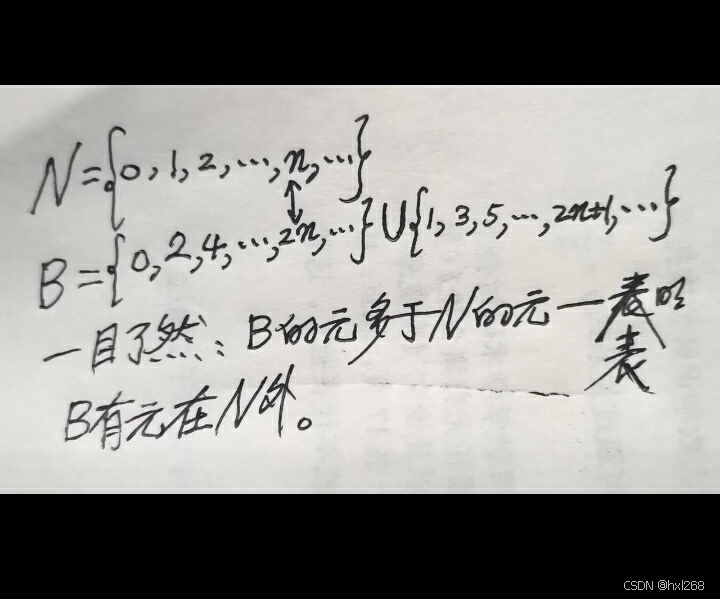 N={0,1,2,…,n,…}
↕
B={0,2,4,…,2n,…}∪{1,3,5,…,2n+1,…}
一目了然：B的元多于N的元一表明
表
B有元在N外。
CSDN @hxl268